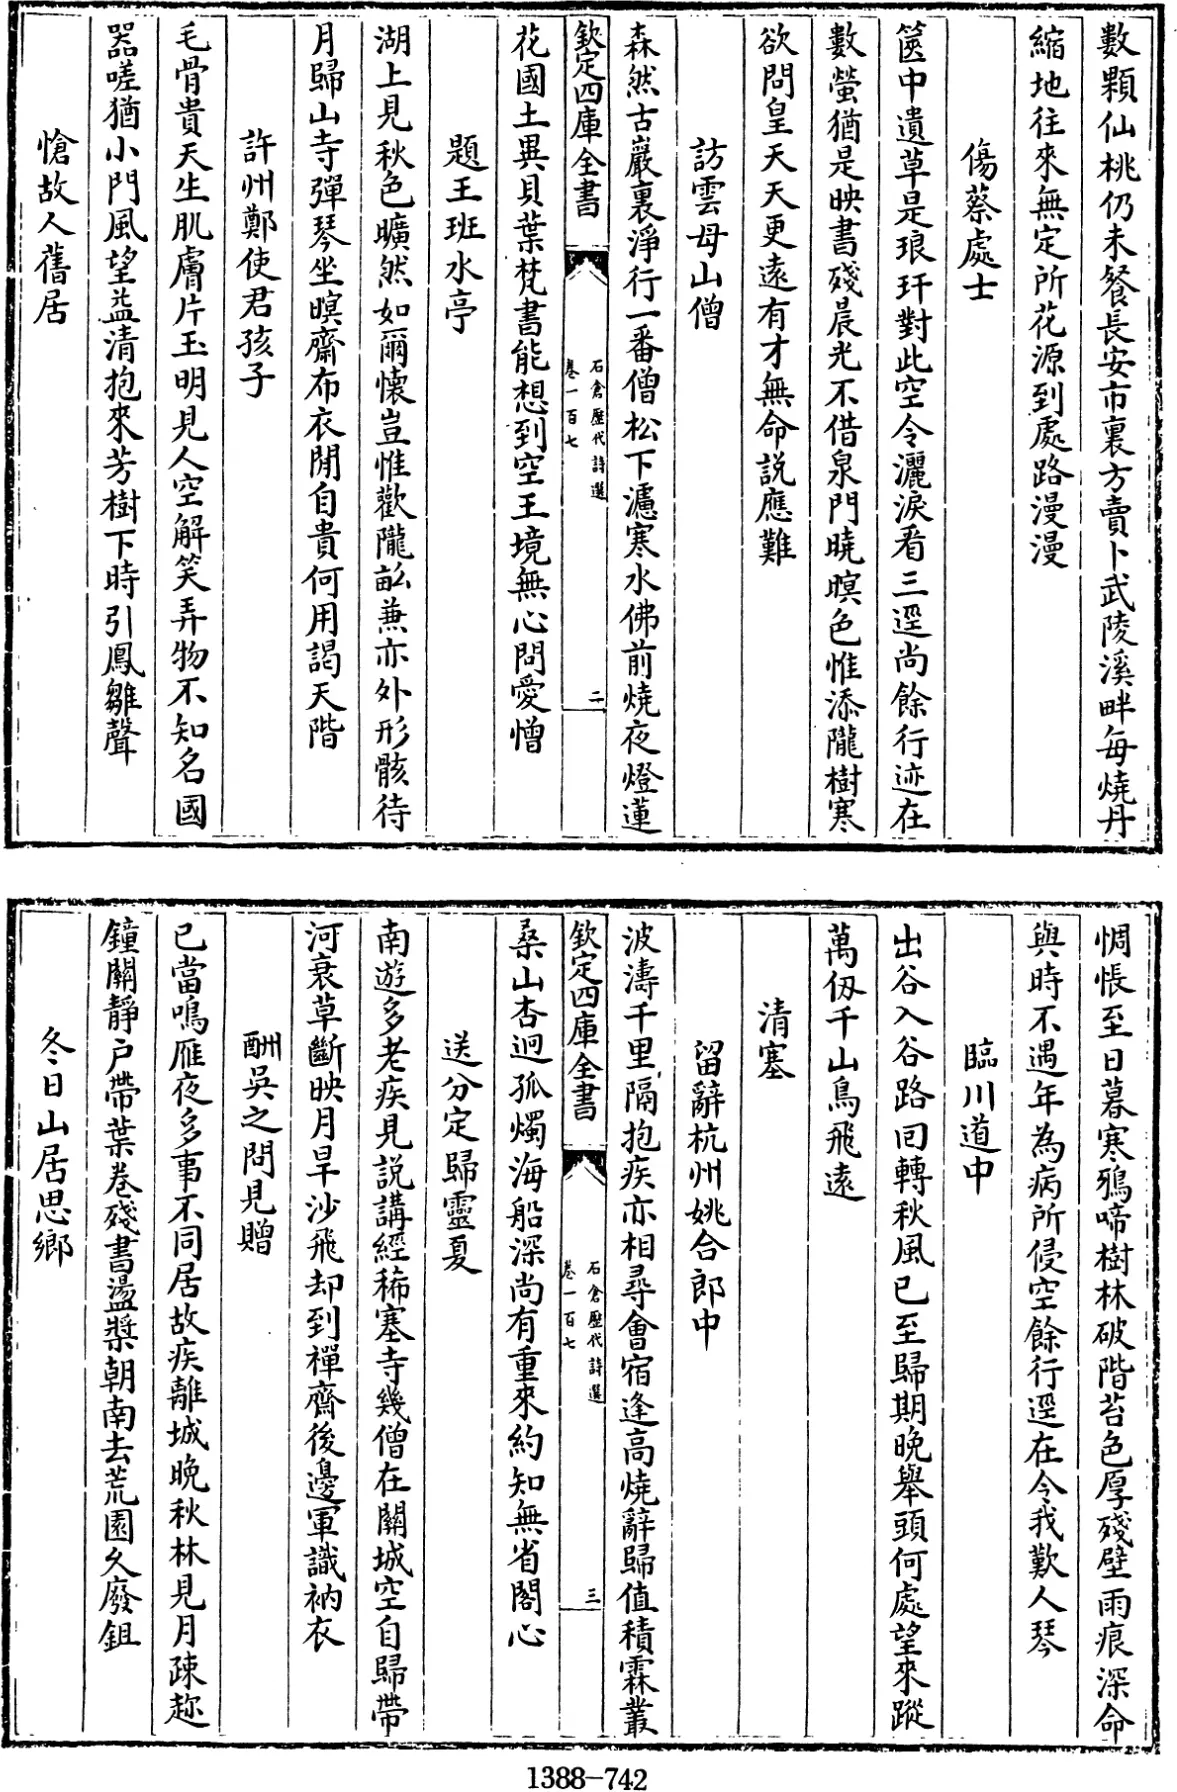 數顆仙桃仍未餐長安市裏方賣卜武陵溪畔每燒丹
縮地往來無定所花源到處路漫漫
傷蔡處士
篋中遺草是琅玕對此空令灑淚看三逕尚餘行迹在
數螢猶是映書殘晨光不借泉門曉暝色惟添隴樹寒
欲問皇天天更遠有才無命説應難
訪雲母山僧
森然古巖裏淨行一番僧松下濾寒水佛前燒夜燈蓮
欽定四庫全書
石倉歷代詩選
卷一百七
二
花國土異貝葉梵書能想到空王境無心問愛憎
題王班水亭
湖上見秋色曠然如爾懷豈惟歡隴畝兼亦外形骸待
月歸山寺彈琴坐暝齋布衣閒自貴何用謁天階
許州鄭使君孩子
毛骨貴天生肌膚片玉明見人空解笑弄物不知名國
器嗟猶小門風望益清抱來芳樹下時引鳳雛聲
愴故人舊居
惆悵至日暮寒鴉啼樹林破階苔色厚殘壁雨痕深命
與時不遇年為病所侵空餘行逕在今我歎人琴
臨川道中
出谷入谷路回轉秋風已至歸期晚舉頭何處望來蹤
萬仭千山鳥飛遠
清塞
留辭杭州姚合郎中
波濤千里隔抱疾亦相尋會宿逢高燒辭歸值積霖叢
欽定四庫全書
石倉歷代詩選
卷一百七
三
桑山杏迥孤燭海船深尚有重來約知無省閣心
送分定歸靈夏
南遊多老疾見説講經稀塞寺幾僧在關城空自歸帶
河衰草斷映月旱沙飛却到禪齋後邊軍識衲衣
酬吳之問見贈
已當鳴雁夜多事不同居故疾離城晚秋林見月疎趂
鐘關靜户帶葉卷殘書盪槳朝南去荒園久廢鉏
冬日山居思鄉
1388-742